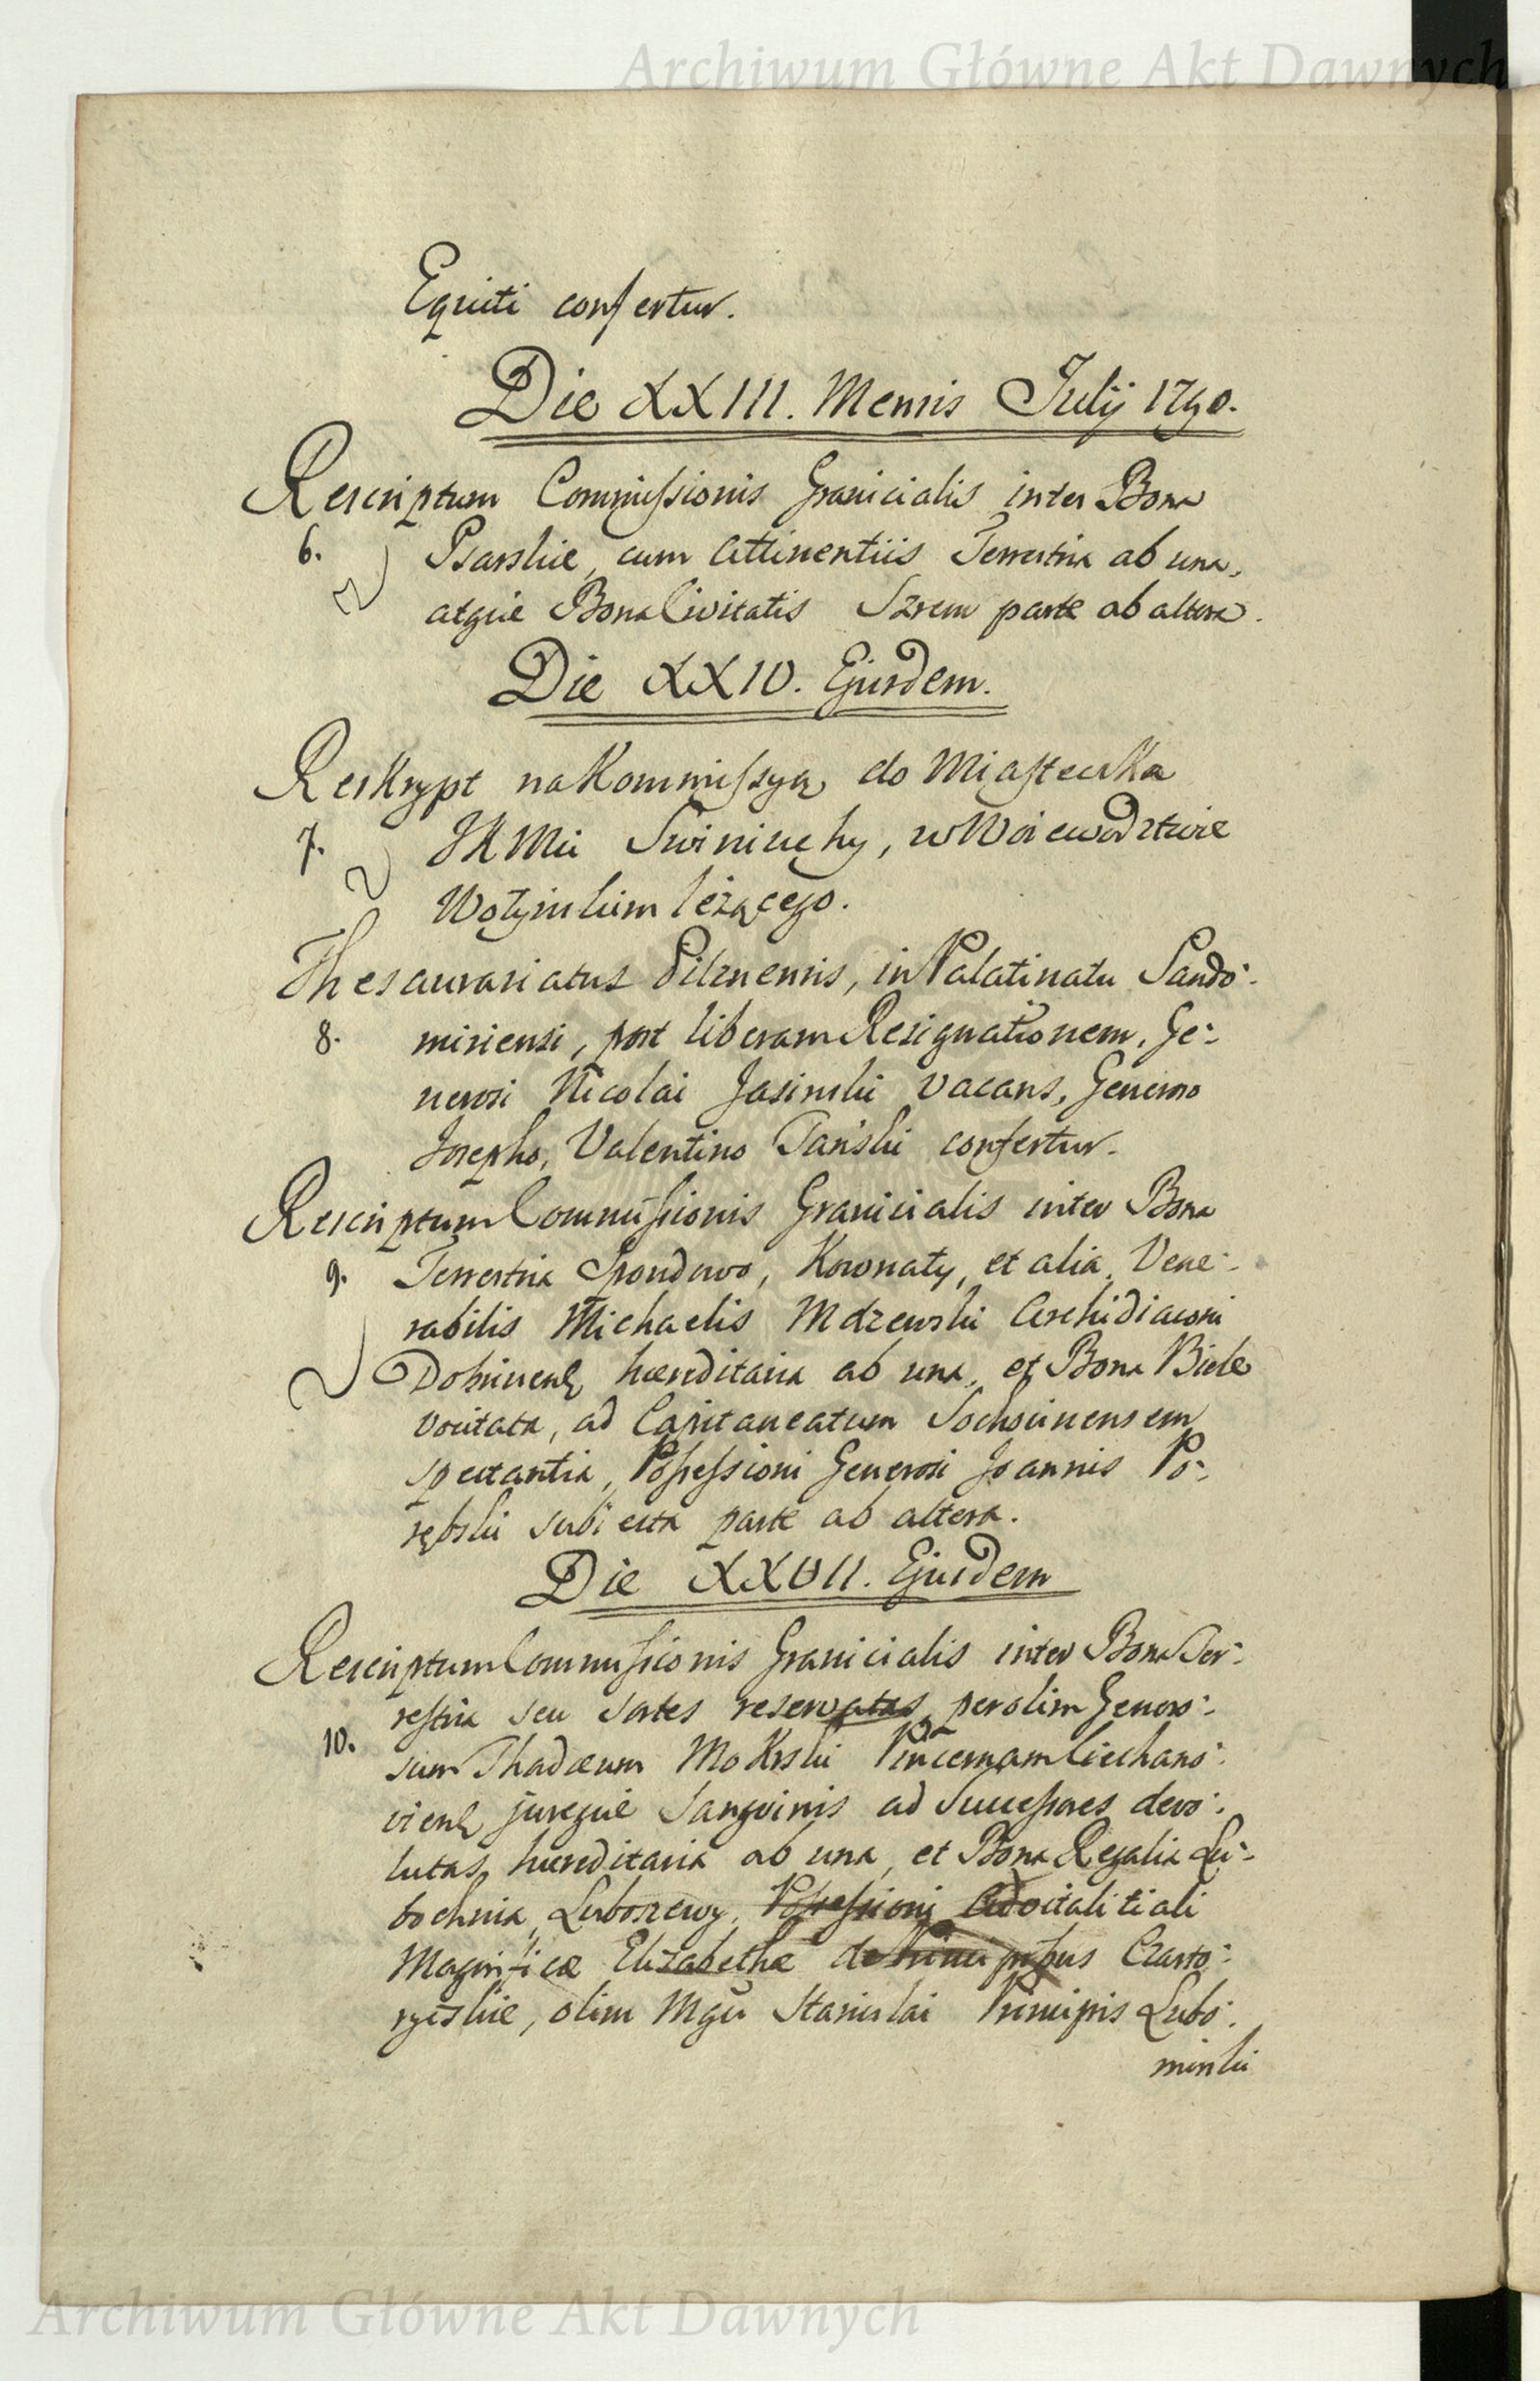 Archiwum Główne Akt Dawnych
Equiti confertur.
Die XXIII. Mensis Julij 1790.
Rescriptum Commissionis Granicialis inter Bona
6. Psarskie, cum Attinentiis Terrestria ab una,
atque Bona Civitatis Szrem parte ab altera.
Die XXIV. Ejusdem.
Reskrypt na Kommissyą do Miasteczka
7. JKMci Swiniuchy, w Woiewodztwie
Wołynskim leżącego.
Thesaurariatus Pilznensis, in Palatinatu Sando-
8. miriensi, post liberam Resignationem, Ge-
nerosi Nicolai Jasinski vacans, Generoso
Josepho, Valentino Tański confertur.
Rescriptum Commissionis Granicialis inter Bona
9. Terrestria Spondowo, Kownaty, et alia, Vene-
rabilis Michaelis Mdzewski Archidiaconi
Dobrinens, hæreditaria ab una, et Bona Biele
vocitata, ad Capitaneatum Sochocinensem
spectantia, Possessioni Generosi Joannis Po-
rębski subiecta parte ab altera.
Die XXVII. Ejusdem
Rescriptum Commissionis Granicialis inter Bona Ter-
restria seu sortes reservatas per olim Genero-
10. sum Thadæum Mokrski Pincernam Ciechano-
viens jureque Sanguinis ad Successores devo-
lutas, hæreditaria ab una, et Bona Regalia Lu-
bochnia, Luboszewy, Possessioni Advitalitiali
Magnificæ Elizabethæ de Principibus Czarto-
ryiskie, olim Mgci Stanislai Principis Lubo-
mirski
Archiwum Główne Akt Dawnych